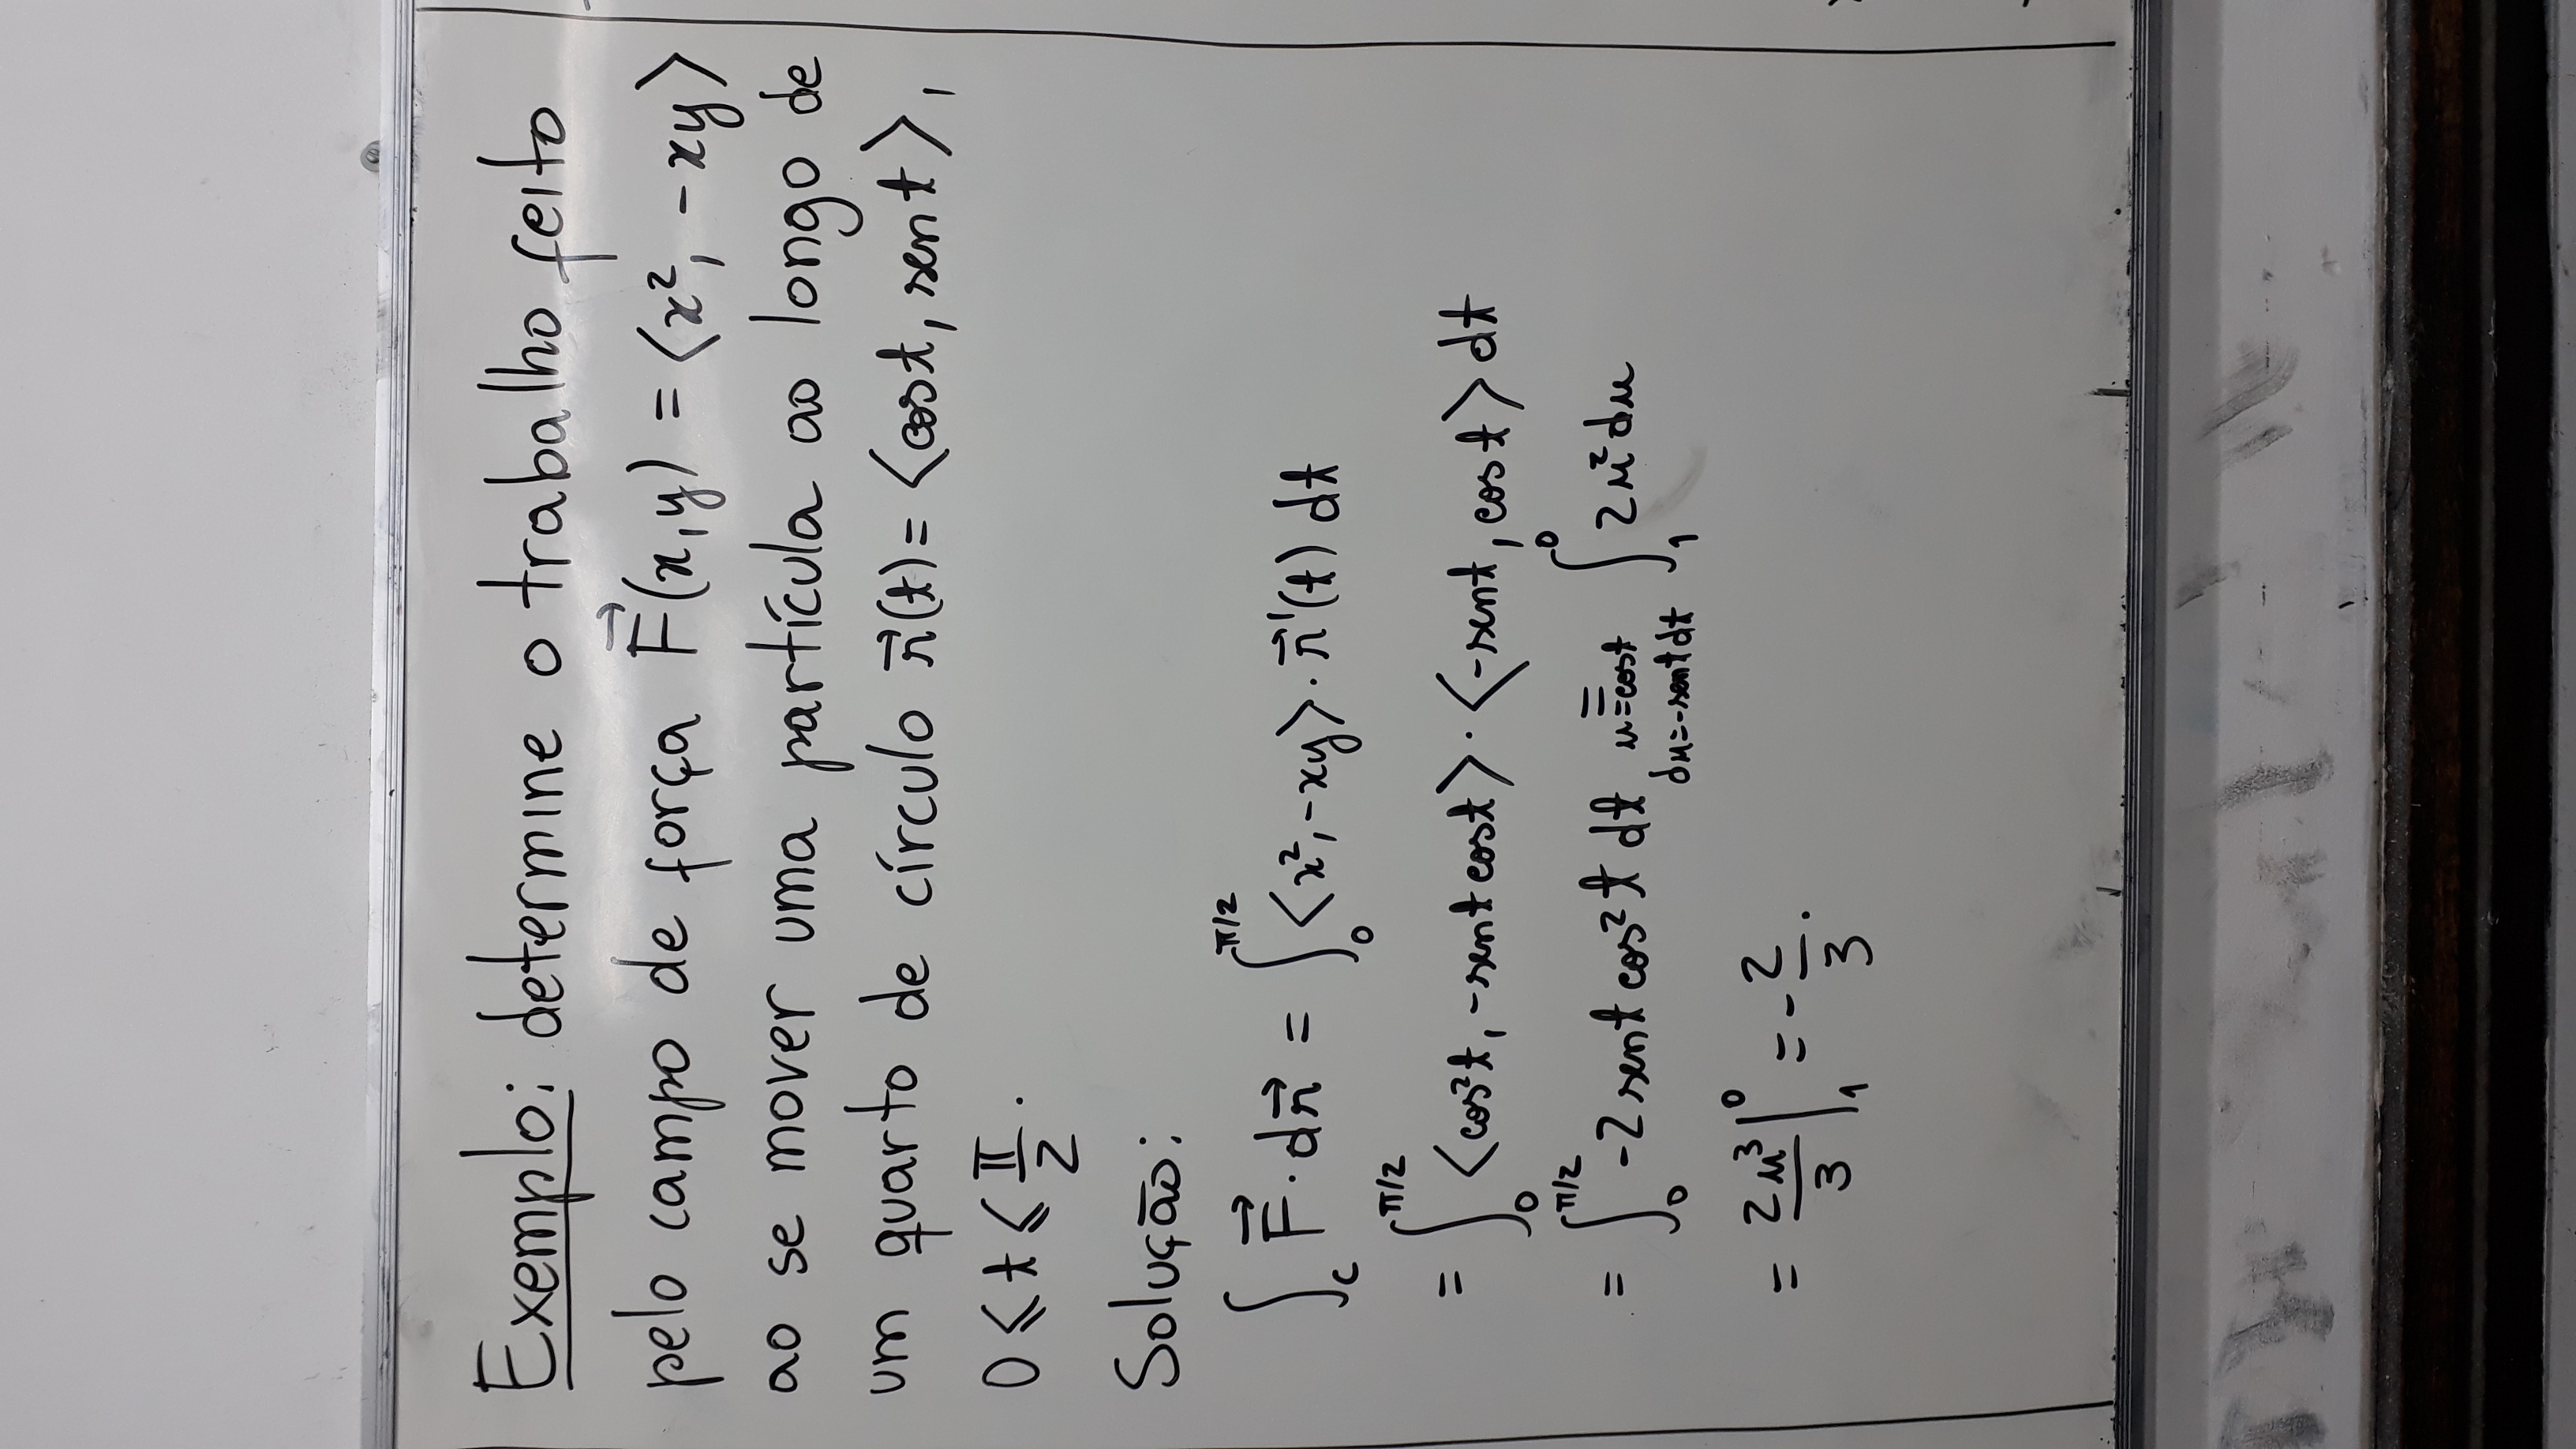 Exemplo: determine o trabalho feito
pelo campo de força F⃗(x,y) = ⟨x², -xy⟩
ao se mover uma partícula ao longo de
um quarto de círculo r⃗(t) = ⟨cos t, sen t⟩,
0 ⩽ t ⩽ π/2.
Solução:
∫_C F⃗ · dr⃗ = ∫_0^{π/2} ⟨x², -xy⟩ · r⃗'(t) dt
= ∫_0^{π/2} ⟨cos²t, -sen t cos t⟩ · ⟨-sen t, cos t⟩ dt
= ∫_0^{π/2} -2 sen t cos² t dt = ∫_1^0 2u² du
u=cos t
du=-sen t dt
= 2u³/3 |_1^0 = -2/3.